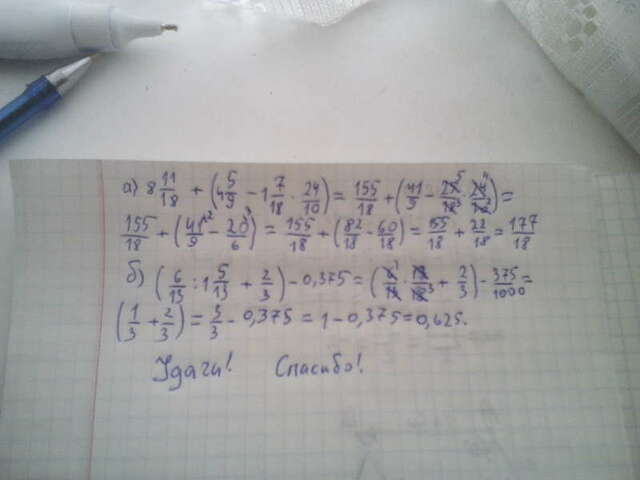 а) 8 11/18 + (4 5/9 - 1 7/18 · 24/10) = 155/18 + (41/9 - 25⁵/18³ · 24⁴/10²) =
155/18 + (41²/9 - 20³/6) = 155/18 + (82/18 - 60/18) = 155/18 + 22/18 = 177/18
б) (6/13 : 1 5/13 + 2/3) - 0,375 = (6¹/13 · 13/18³ + 2/3) - 375/1000 =
(1/3 + 2/3) = 3/3 - 0,375 = 1 - 0,375 = 0,625.
Удачи! Спасибо!